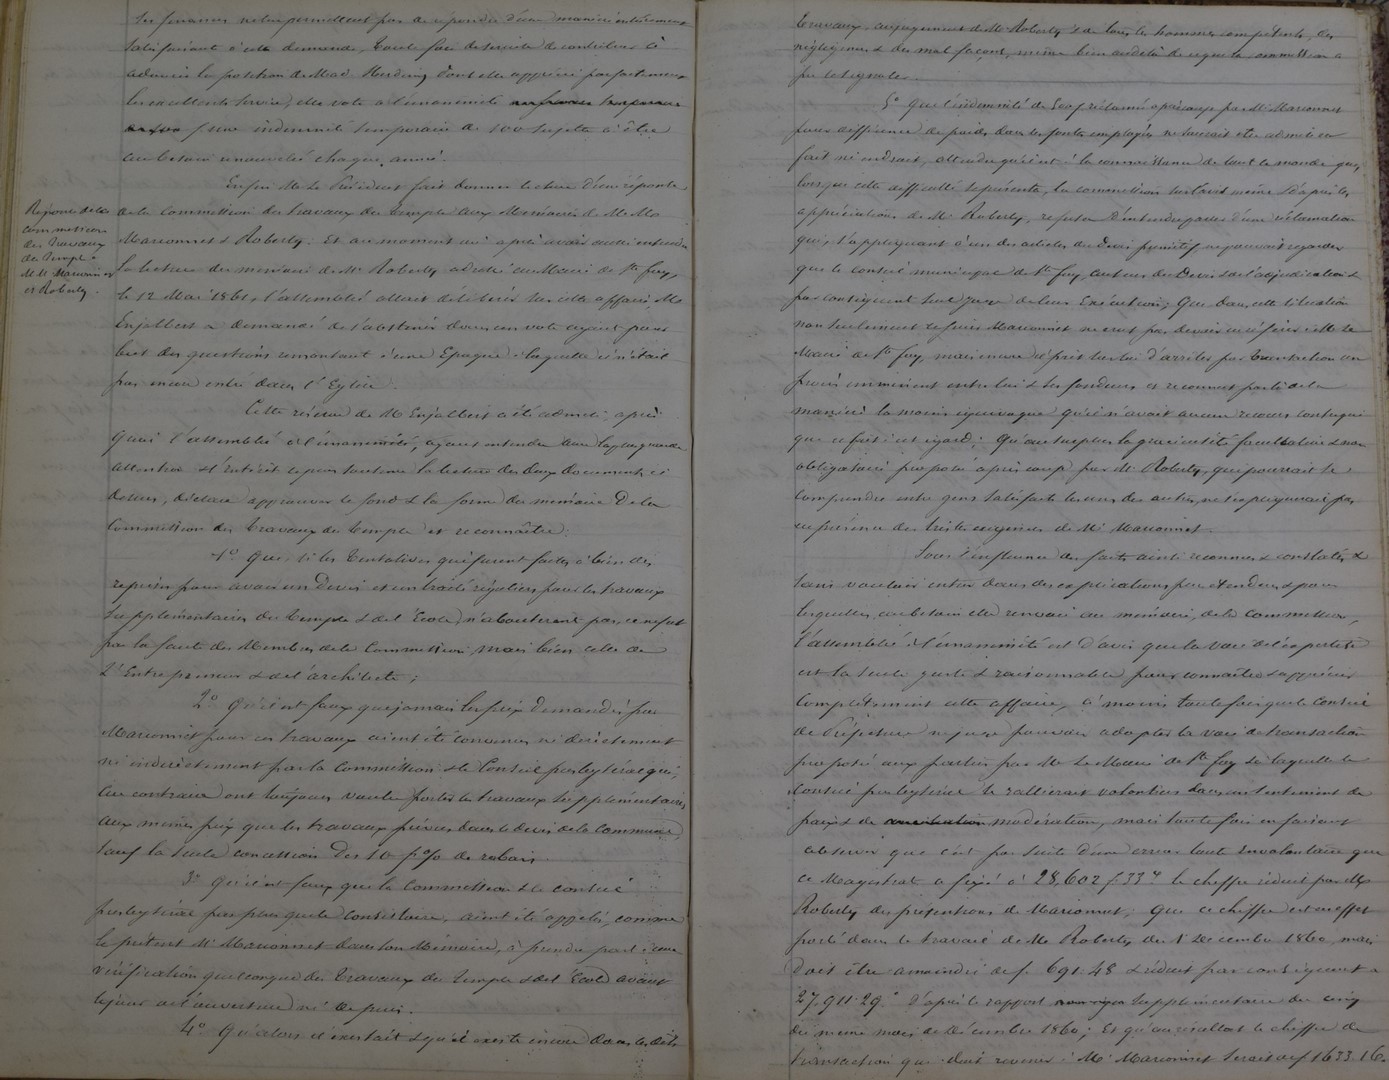 les finances ne leur permettent pas de répondre d'une manière entièrement
satisfaisant à cette demande, toute fois désireuse de contribuer à
adoucir la position de Mad. Harding dont elle apprécie parfaitement
les excellents services, elle vote à l'unanimité
une indemnité temporaire de 100 sujette à être
au besoin renouvelée chaque année.
Enfin Mr le Président fait donner lecture d'une réponse
Réponse de la
commission
des travaux
du Temple
M.M. Marionnet
et Roberty.
de la commission des travaux du temple aux Mémoires de M. M.
Marionnet & Roberty. Et au moment où après avoir aussi entendu
la lecture du mémoire de Mr Roberty adressé au Maire de Ste Foy,
le 12 Mai 1861, l'assemblée allait délibérer sur cette affaire, Mr
Enjalbert a demandé de s'abstenir dans un vote ayant pour
but des questions remontant à une Epoque à laquelle il n'était
pas encore entré dans l'Eglise.
Cette réserve de Mr Enjalbert a été admise; après
quoi l'assemblée à l'unanimité, ayant entendu avec la plus grande
attention et l'intérêt le plus soutenu la lecture des deux documents ci
dessus, déclare approuver le fond & la forme du mémoire de la
Commission des Travaux du Temple et reconnaître:
1° Que, si les tentatives qui furent faites à bien des
reprises pour avoir un Devis et un traité réguliers pour les travaux
supplémentaires du Temple & de l'Ecole n'aboutirent pas, ce ne fut
par la faute des Membres de la Commission mais bien celle de
l'Entrepreneur & de l'architecte;
2° Qu'il est faux que jamais les prix demandés par
Marionnet pour ces travaux aient été convenus ni directement
ni indirectement par la Commission & le Conseil presbytéral qui,
au contraire ont toujours voulu porter les travaux supplémentaires
aux mêmes prix que les travaux prévus dans le devis de la commune,
sauf la seule concession des 10 p% de rabais.
3° Qu'il est faux que la Commission & le conseil
presbytéral pas plus que le Consistoire, aient été appelés, comme
le prétend Mr Marionnet dans son Mémoire, à prendre part à une
vérification quelconque des Travaux du Temple & de l'Ecole avant
le jour de l'ouverture ni depuis.
4° Qu'alors il existait & qu'il existe encore dans les dits
travaux, au jugement de Mr Roberty & de tous les hommes compétents, des
négligences & des mal façons, même bien au delà de ce que la commission a
pu le signaler.
5° Que l'indemnité de 500f réclamée après coup par Mr Marionnet
pour différence de poids dans les fontes employées ne saurait être admise en
fait ni en droit, attendu qu'il est à la connaissance de tout le monde que,
lorsque cette difficulté se présenta, la commission suivant même d'après les
appréciations de Mr Roberty, refusa d'entendre parler d'une réclamation
qui, s'appliquant à un des articles du Devis primitif ne pouvait regarder
que le conseil municipal de Ste Foy, auteur du Devis & de l'adjudication &
par conséquent seul juge de leur Exécution; Que dans cette situation
non seulement le sieur Marionnet ne crut pas devoir en référer à Mr le
Maire de Ste Foy, mais encore il prit sur lui d'arrêter par transaction un
procès imminent entre lui & ses fondeurs et reconnut par là de la
manière la moins équivoque qu'il n'avait aucun recours contre qui
que ce fut à cet égard; Qu'au surplus la gracieuseté facultative & non
obligatoire proposée après coup par Mr Roberty, qui pourrait se
comprendre entre gens satisfaits les uns des autres, ne s'expliquerait pas
en présence des tristes exigences de Mr Marionnet.
Sous l'influence des faits ainsi reconnus & constatés &
sans vouloir entrer dans des explications plus étendues & pour
lesquelles, au besoin elle renvoie au mémoire de la commission,
l'assemblée à l'unanimité est d'avis que la voie de l'expertise
est la seule juste & raisonnable pour connaître & apprécier
complètement cette affaire, à moins toute fois que le Conseil
de Préfecture ne juge pouvoir adopter la voie de transaction
proposée aux parties par Mr le Maire de Ste Foy à laquelle le
Conseil presbytéral se rallierait volontiers dans un sentiment de
paix & de modération, mais toute fois en faisant
observer que c'est par suite d'une erreur toute involontaire que
ce Magistrat a fixé à 28,602 f. 33c le chiffre réduit par Mr
Roberty des prétentions de Marionnet; Que ce chiffre est en effet
porté dans le travail de Mr Roberty du 1r Décembre 1860, mais
doit être amoindri de f. 691.48 & réduit par conséquent à
27,911.29c d'après le rapport supplémentaire du cinq
du même mois de Décembre 1860; Et qu'au résultat le chiffre de
transaction que doit revenir à Mr Marionnet serait de f 1633.16.